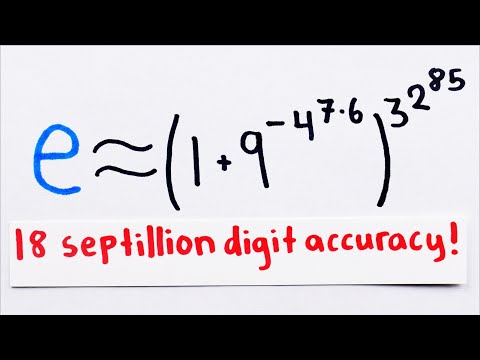 e ≈ (1 + 9^{-4^{7·6}})^{3^{2^{85}}}
18 septillion digit accuracy!